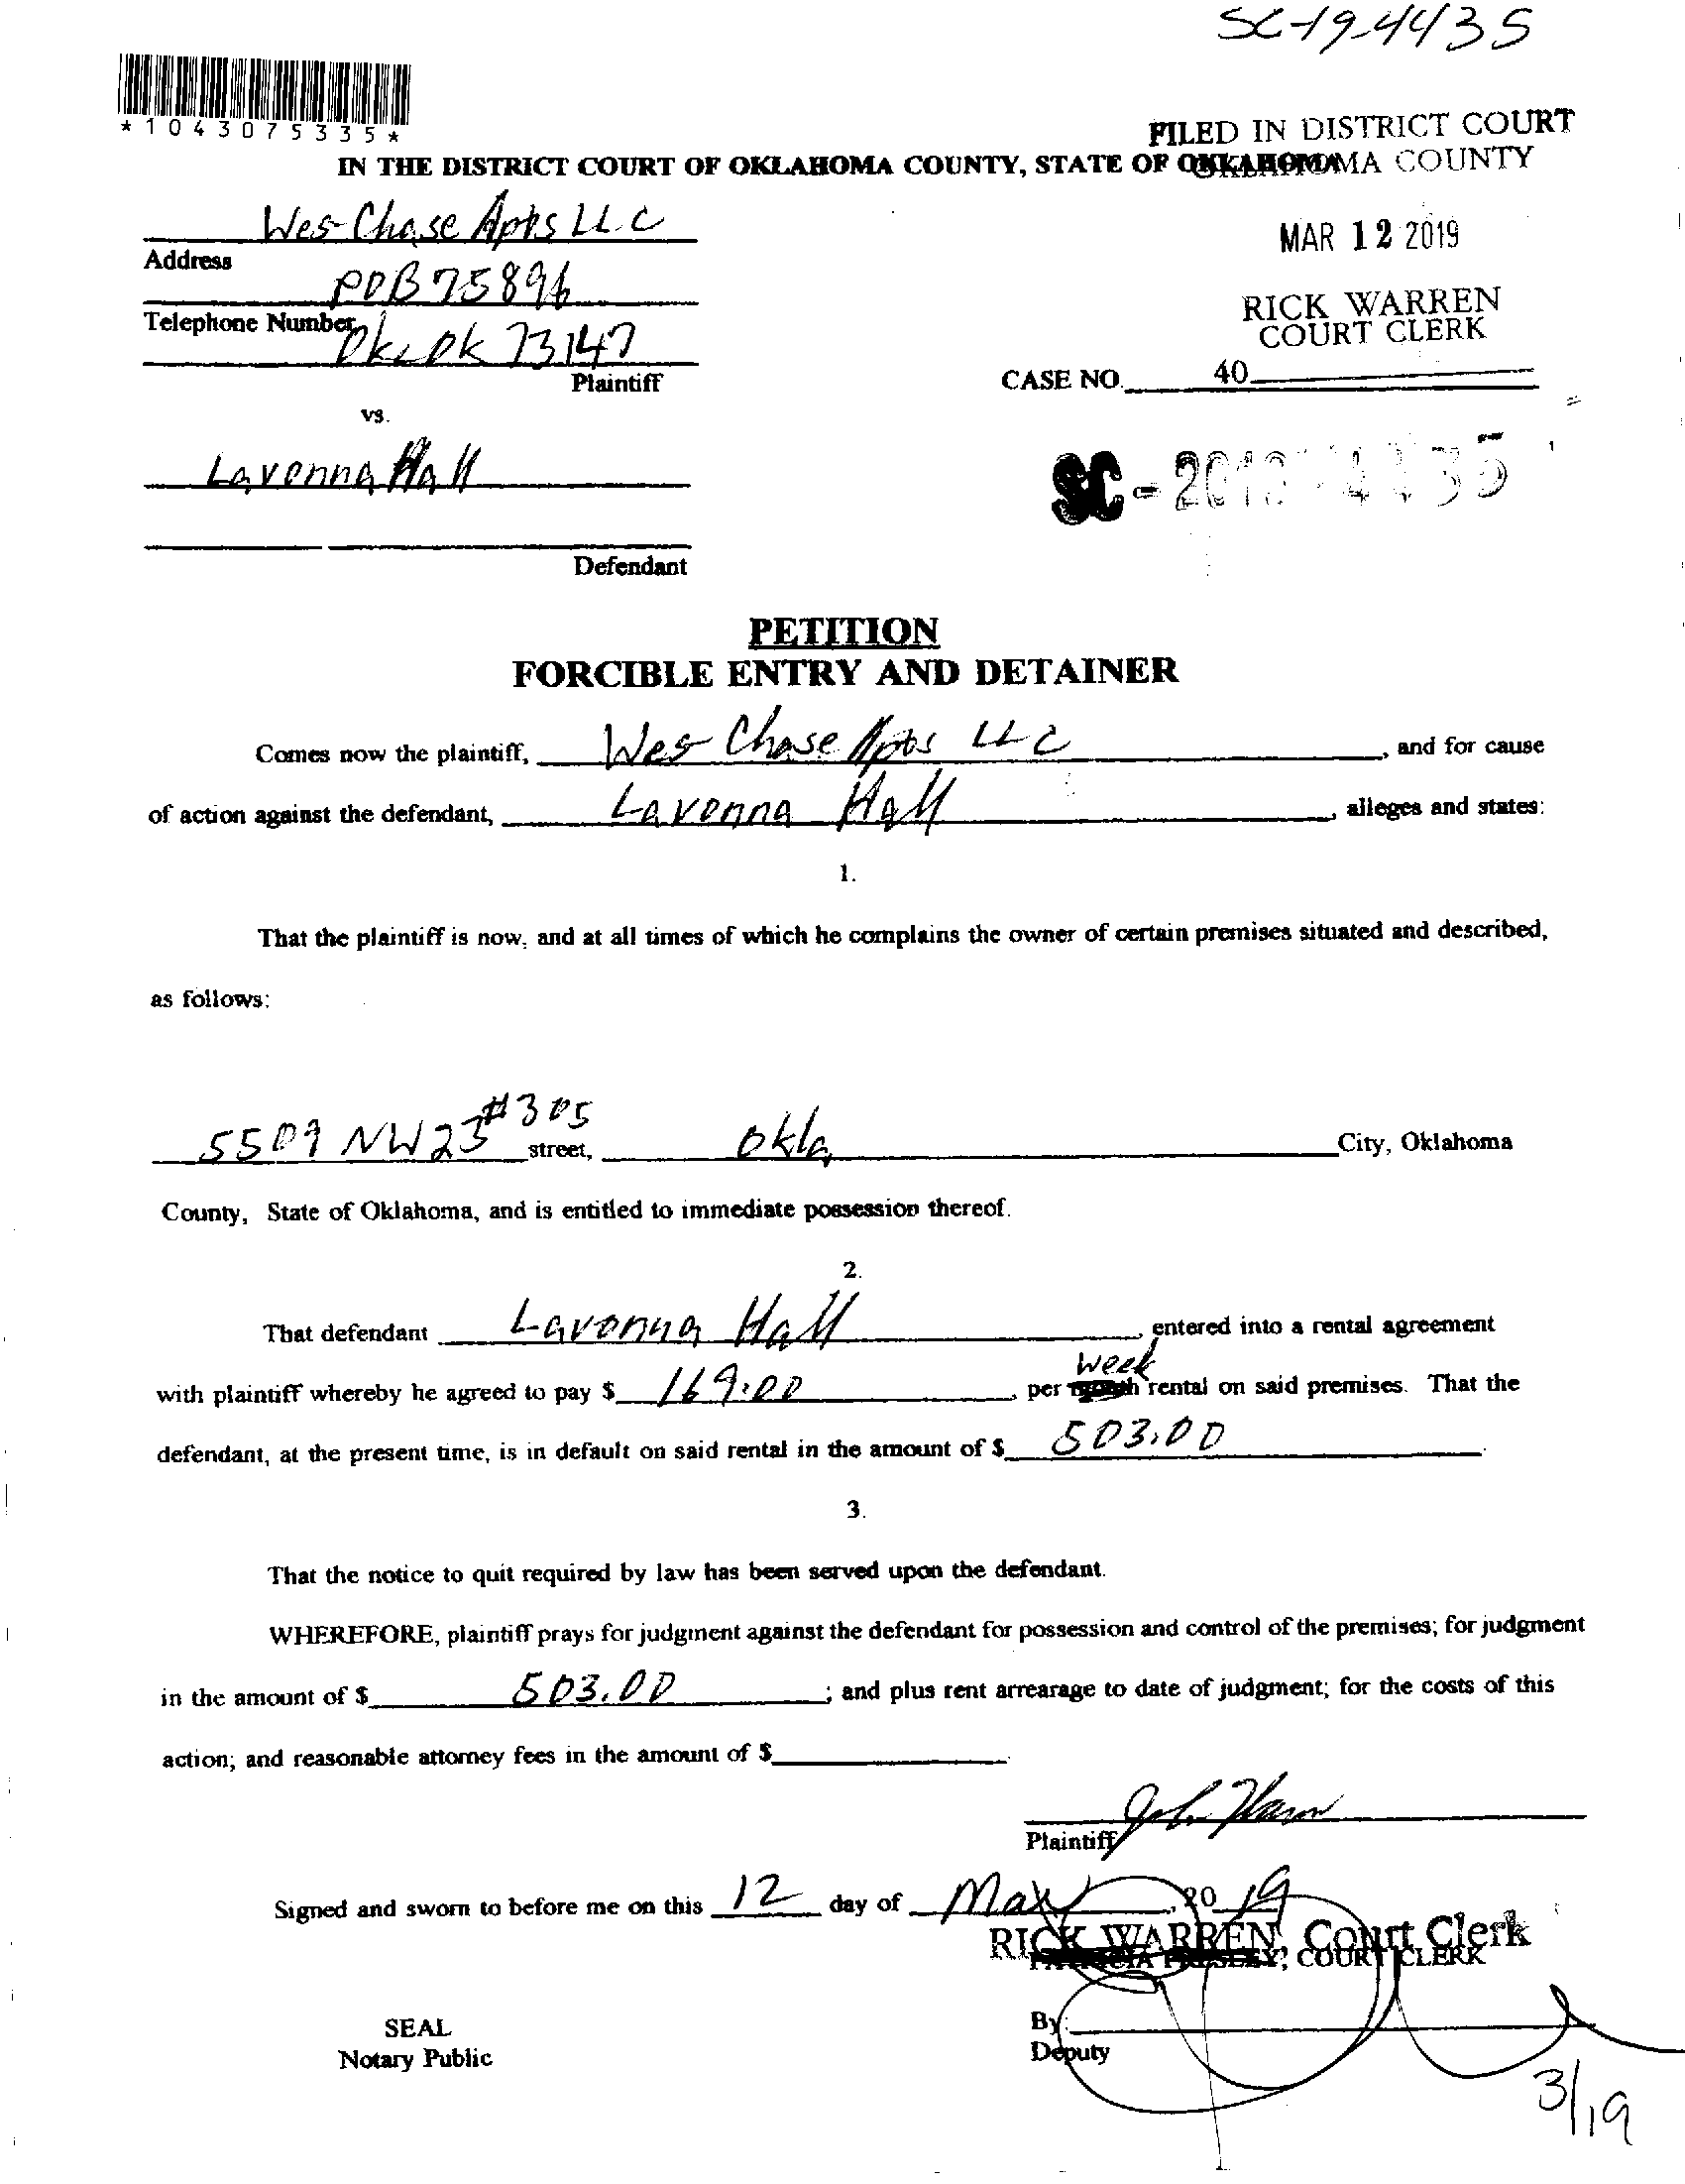 SC-19-4435
*1043075335*
FILED IN DISTRICT COURT
IN THE DISTRICT COURT OF OKLAHOMA COUNTY, STATE OF OKLAHOMA COUNTY
Wes Chase Apts LLC
MAR 12 2019
Address
POB 75896
RICK WARREN
Telephone Number
COURT CLERK
Okc Ok 73147
Plaintiff
CASE NO. 40
vs.
Lavonna Hall
SC - 2019-4435
Defendant
PETITION
FORCIBLE ENTRY AND DETAINER
Comes now the plaintiff, Wes Chase Apts LLC, and for cause
of action against the defendant, Lavonna Hall, alleges and states:
1.
That the plaintiff is now, and at all times of which he complains the owner of certain premises situated and described,
as follows:
5509 NW 23 #305 street, Okla City, Oklahoma
County, State of Oklahoma, and is entitled to immediate possession thereof.
2.
That defendant Lavonna Hall, entered into a rental agreement
week
with plaintiff whereby he agreed to pay $ 169.00, per month rental on said premises. That the
defendant, at the present time, is in default on said rental in the amount of $ 503.00.
3.
That the notice to quit required by law has been served upon the defendant.
WHEREFORE, plaintiff prays for judgment against the defendant for possession and control of the premises; for judgment
in the amount of $ 503.00; and plus rent arrearage to date of judgment; for the costs of this
action; and reasonable attorney fees in the amount of $
Plaintiff
Signed and sworn to before me on this 12 day of Mar, 20 19
RICK WARREN, Court Clerk
PATRICIA PRESLEY, COURT CLERK
SEAL
By:
Notary Public
Deputy
3/19